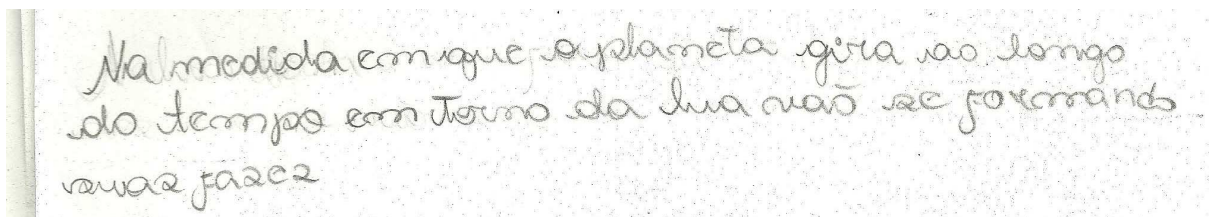 Na medida em que o planeta gira ao longo
do tempo em torno da lua vaõ se formando
suas fazes